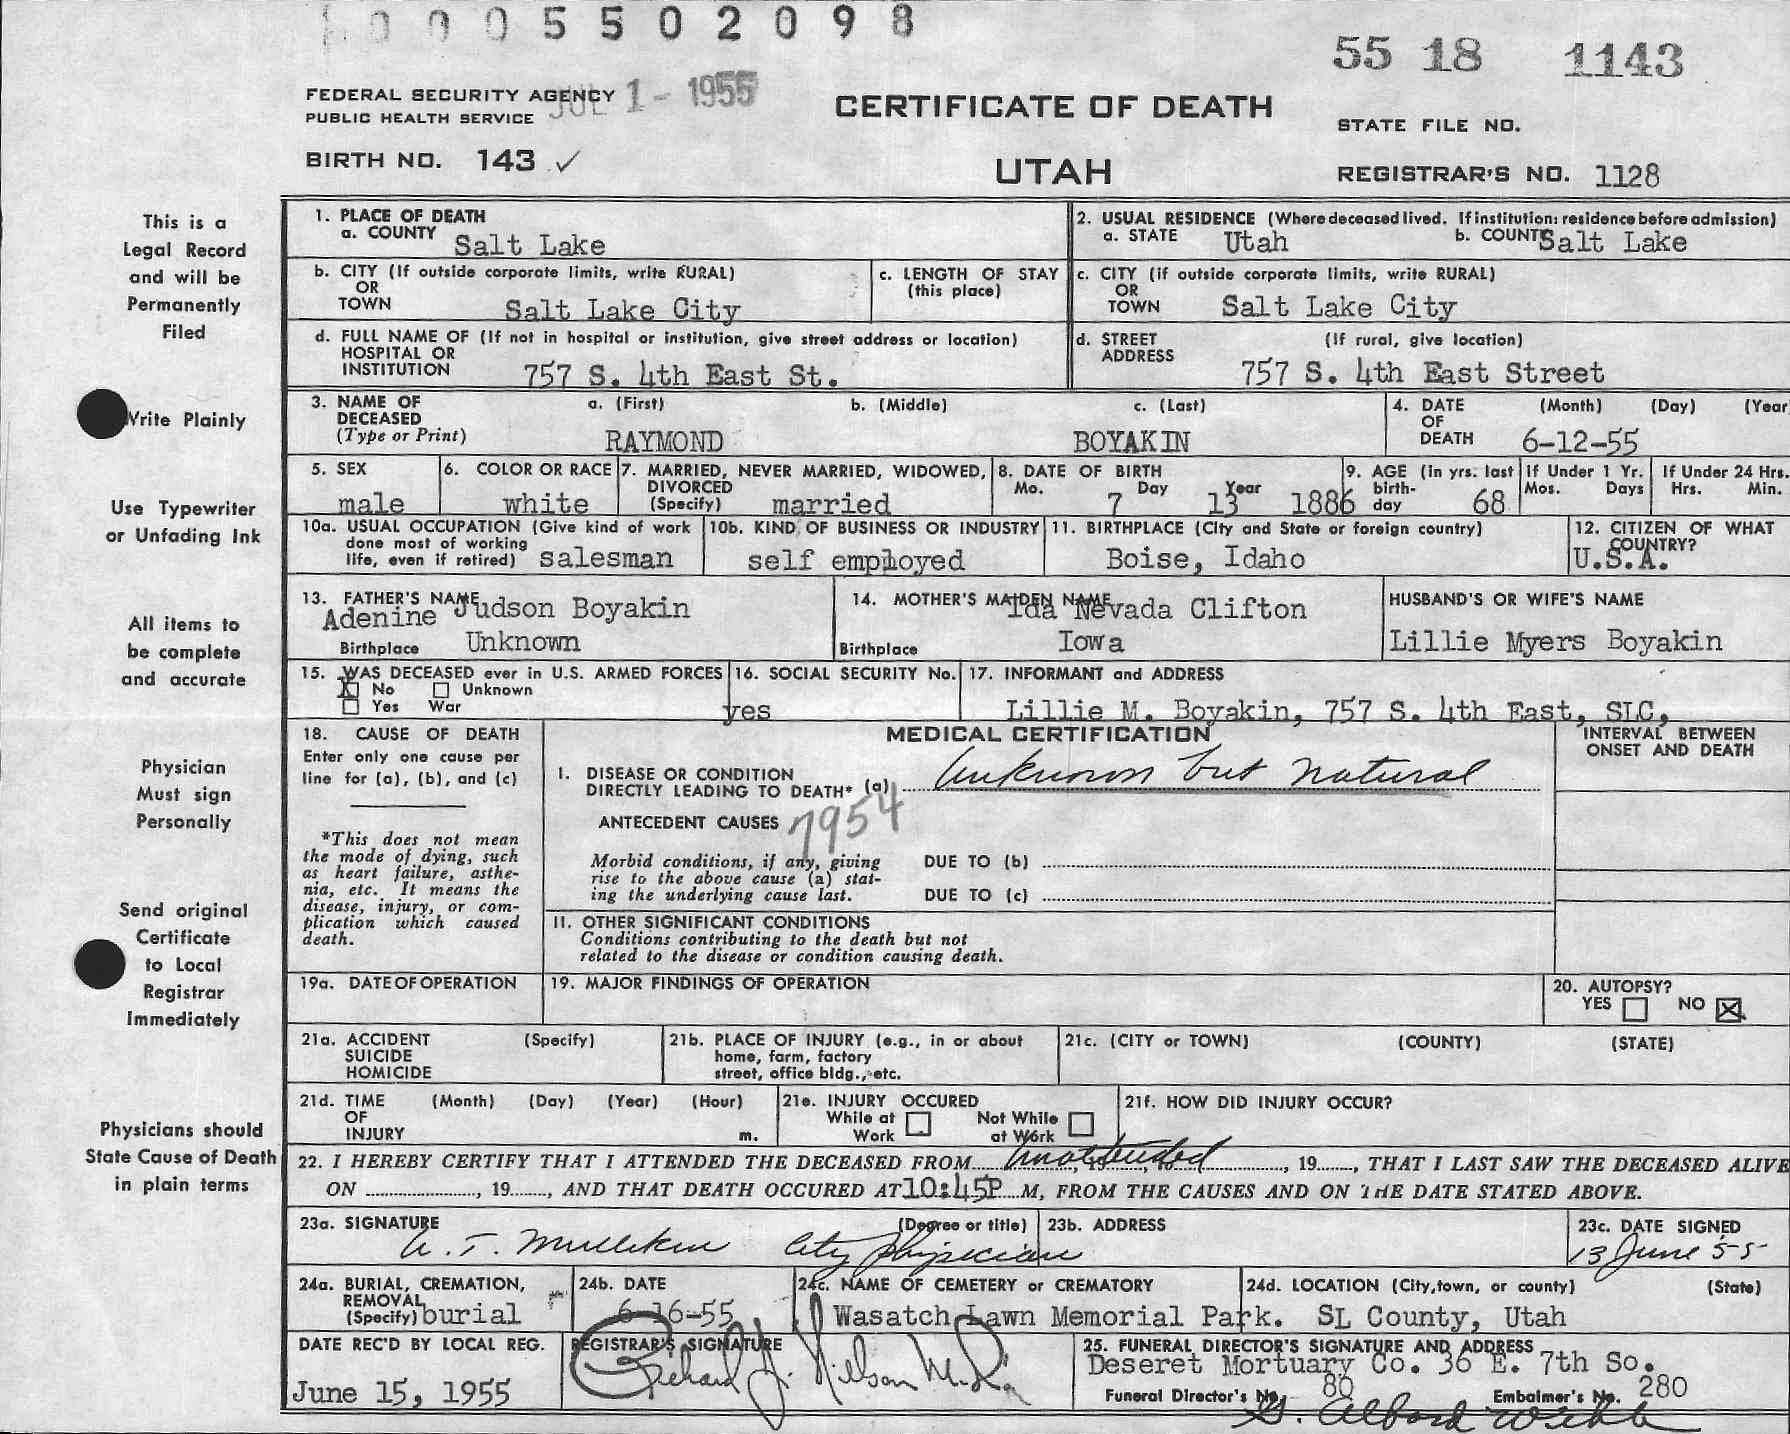 0005502098
55 18 1143
FEDERAL SECURITY AGENCY
PUBLIC HEALTH SERVICE
JUL 1 - 1955
CERTIFICATE OF DEATH
STATE FILE NO.
BIRTH NO. 143 ✓
UTAH
REGISTRAR'S NO. 1128
This is a
Legal Record
and will be
Permanently
Filed
Write Plainly
Use Typewriter
or Unfading Ink
All items to
be complete
and accurate
Physician
Must sign
Personally
Send original
Certificate
to Local
Registrar
Immediately
Physicians should
State Cause of Death
in plain terms
1. PLACE OF DEATH
a. COUNTY Salt Lake
2. USUAL RESIDENCE (Where deceased lived. If institution: residence before admission)
a. STATE Utah b. COUNTY Salt Lake
b. CITY (If outside corporate limits, write RURAL)
OR
TOWN Salt Lake City
c. LENGTH OF STAY
(this place)
c. CITY (if outside corporate limits, write RURAL)
OR
TOWN Salt Lake City
d. FULL NAME OF (If not in hospital or institution, give street address or location)
HOSPITAL OR
INSTITUTION 757 S. 4th East St.
d. STREET (If rural, give location)
ADDRESS 757 S. 4th East Street
3. NAME OF a. (First) b. (Middle) c. (Last)
DECEASED
(Type or Print) RAYMOND BOYAKIN
4. DATE (Month) (Day) (Year
OF
DEATH 6-12-55
5. SEX
male
6. COLOR OR RACE
white
7. MARRIED, NEVER MARRIED, WIDOWED,
DIVORCED
(Specify) married
8. DATE OF BIRTH
Mo. Day Year
7 13 1886
9. AGE (In yrs. last
birth-
day 68
If Under 1 Yr.
Mos. Days
If Under 24 Hrs.
Hrs. Min.
10a. USUAL OCCUPATION (Give kind of work
done most of working
life, even if retired) salesman
10b. KIND OF BUSINESS OR INDUSTRY
self employed
11. BIRTHPLACE (City and State or foreign country)
Boise, Idaho
12. CITIZEN OF WHAT
COUNTRY?
U.S.A.
13. FATHER'S NAME
Adenine Judson Boyakin
Birthplace Unknown
14. MOTHER'S MAIDEN NAME
Ida Nevada Clifton
Birthplace Iowa
HUSBAND'S OR WIFE'S NAME
Lillie Myers Boyakin
15. WAS DECEASED ever in U.S. ARMED FORCES
X No Unknown
Yes War
16. SOCIAL SECURITY No.
yes
17. INFORMANT and ADDRESS
Lillie M. Boyakin, 757 S. 4th East, SLC,
18. CAUSE OF DEATH
Enter only one cause per
line for (a), (b), and (c)
*This does not mean
the mode of dying, such
as heart failure, asthe-
nia, etc. It means the
disease, injury, or com-
plication which caused
death.
MEDICAL CERTIFICATION
INTERVAL BETWEEN
ONSET AND DEATH
I. DISEASE OR CONDITION
DIRECTLY LEADING TO DEATH* (a) Unknown but natural
ANTECEDENT CAUSES 7954
Morbid conditions, if any, giving
rise to the above cause (a) stat-
ing the underlying cause last.
DUE TO (b)
DUE TO (c)
II. OTHER SIGNIFICANT CONDITIONS
Conditions contributing to the death but not
related to the disease or condition causing death.
19a. DATE OF OPERATION
19. MAJOR FINDINGS OF OPERATION
20. AUTOPSY?
YES NO X
21a. ACCIDENT (Specify)
SUICIDE
HOMICIDE
21b. PLACE OF INJURY (e.g., in or about
home, farm, factory
street, office bldg., etc.
21c. (CITY or TOWN) (COUNTY) (STATE)
21d. TIME (Month) (Day) (Year) (Hour)
OF
INJURY m.
21e. INJURY OCCURED
While at Not While
Work at Work
21f. HOW DID INJURY OCCUR?
22. I HEREBY CERTIFY THAT I ATTENDED THE DECEASED FROM Unattended, 19....., THAT I LAST SAW THE DECEASED ALIVE
ON ..................., 19......, AND THAT DEATH OCCURED AT 10:45P M, FROM THE CAUSES AND ON THE DATE STATED ABOVE.
23a. SIGNATURE (Degree or title)
City Physician
23b. ADDRESS
23c. DATE SIGNED
13 June 55
24a. BURIAL, CREMATION,
REMOVAL
(Specify) burial
24b. DATE
6-16-55
24c. NAME OF CEMETERY or CREMATORY
Wasatch Lawn Memorial Park.
24d. LOCATION (City, town, or county) (State)
SL County, Utah
DATE REC'D BY LOCAL REG.
June 15, 1955
REGISTRAR'S SIGNATURE
Richard J. Nilson
25. FUNERAL DIRECTOR'S SIGNATURE AND ADDRESS
Deseret Mortuary Co. 36 E. 7th So.
Funeral Director's No. 80 Embalmer's No. 280
Webb